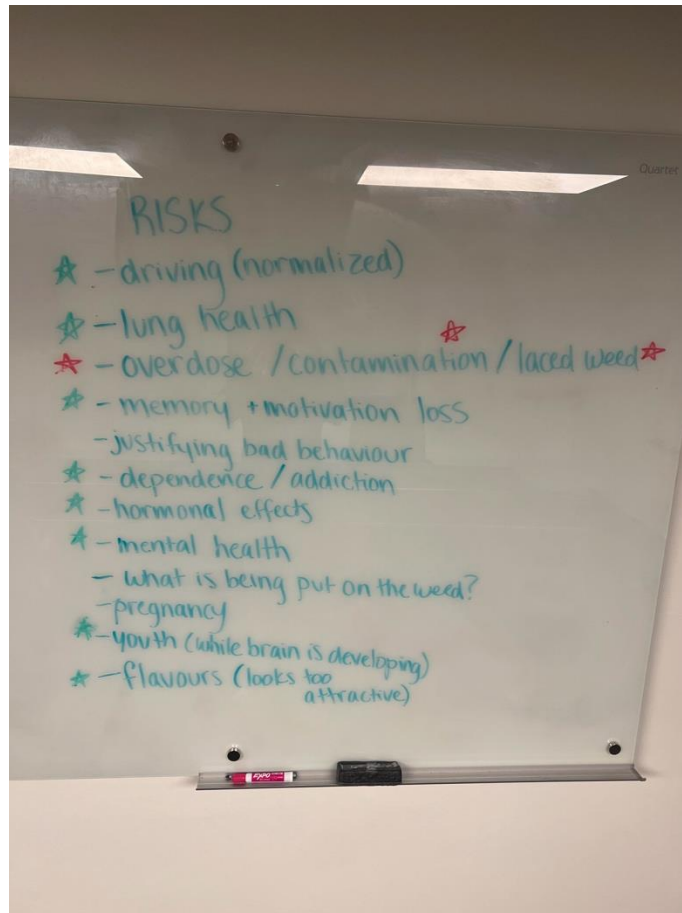 Quartet
RISKS
☆ - driving (normalized)
☆ - lung health
☆ - overdose / contamination ☆ / laced weed ☆
☆ - memory + motivation loss
- justifying bad behaviour
☆ - dependence / addiction
☆ - hormonal effects
☆ - mental health
- what is being put on the weed?
- pregnancy
☆ - youth (while brain is developing)
☆ - flavours (looks too
attractive)
EXPO